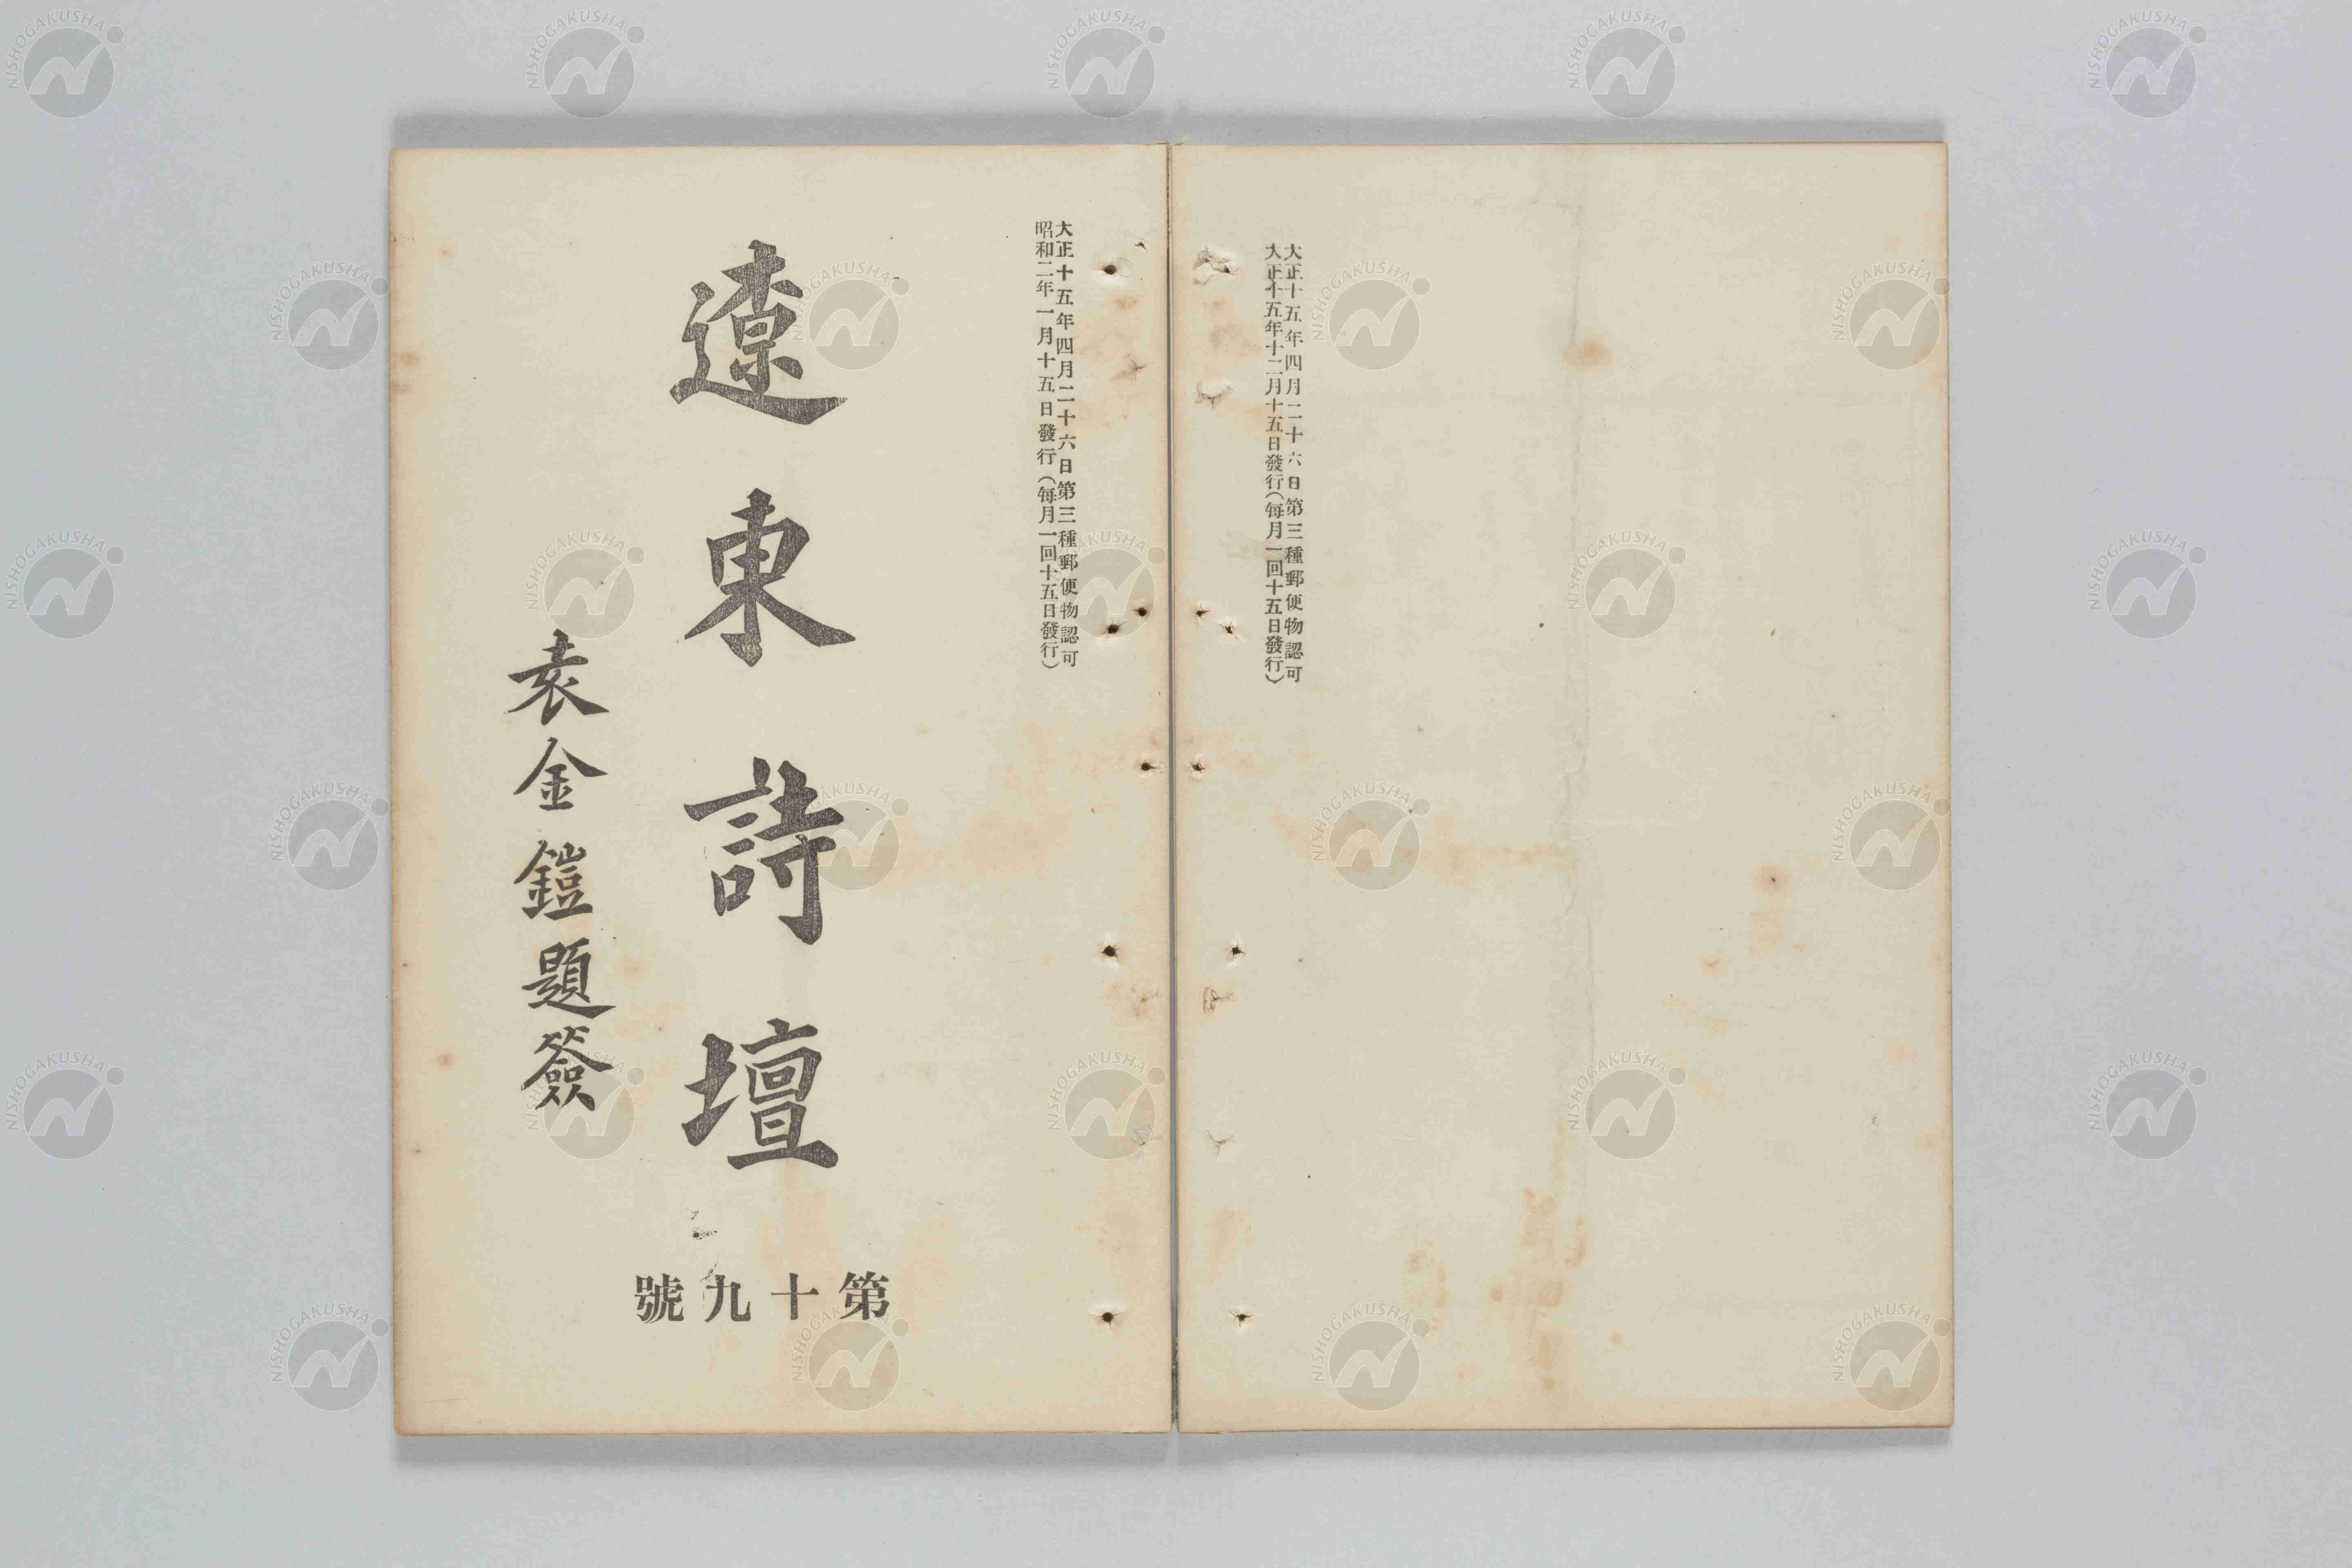 大正十五年四月二十六日第三種郵便物認可
大正十五年十二月十五日發行(每月一回十五日發行)
大正十五年四月二十六日第三種郵便物認可
昭和二年一月十五日發行(每月一回十五日發行)
遼東詩壇
袁金鎧題簽
第十九號
NISHOGAKUSHA